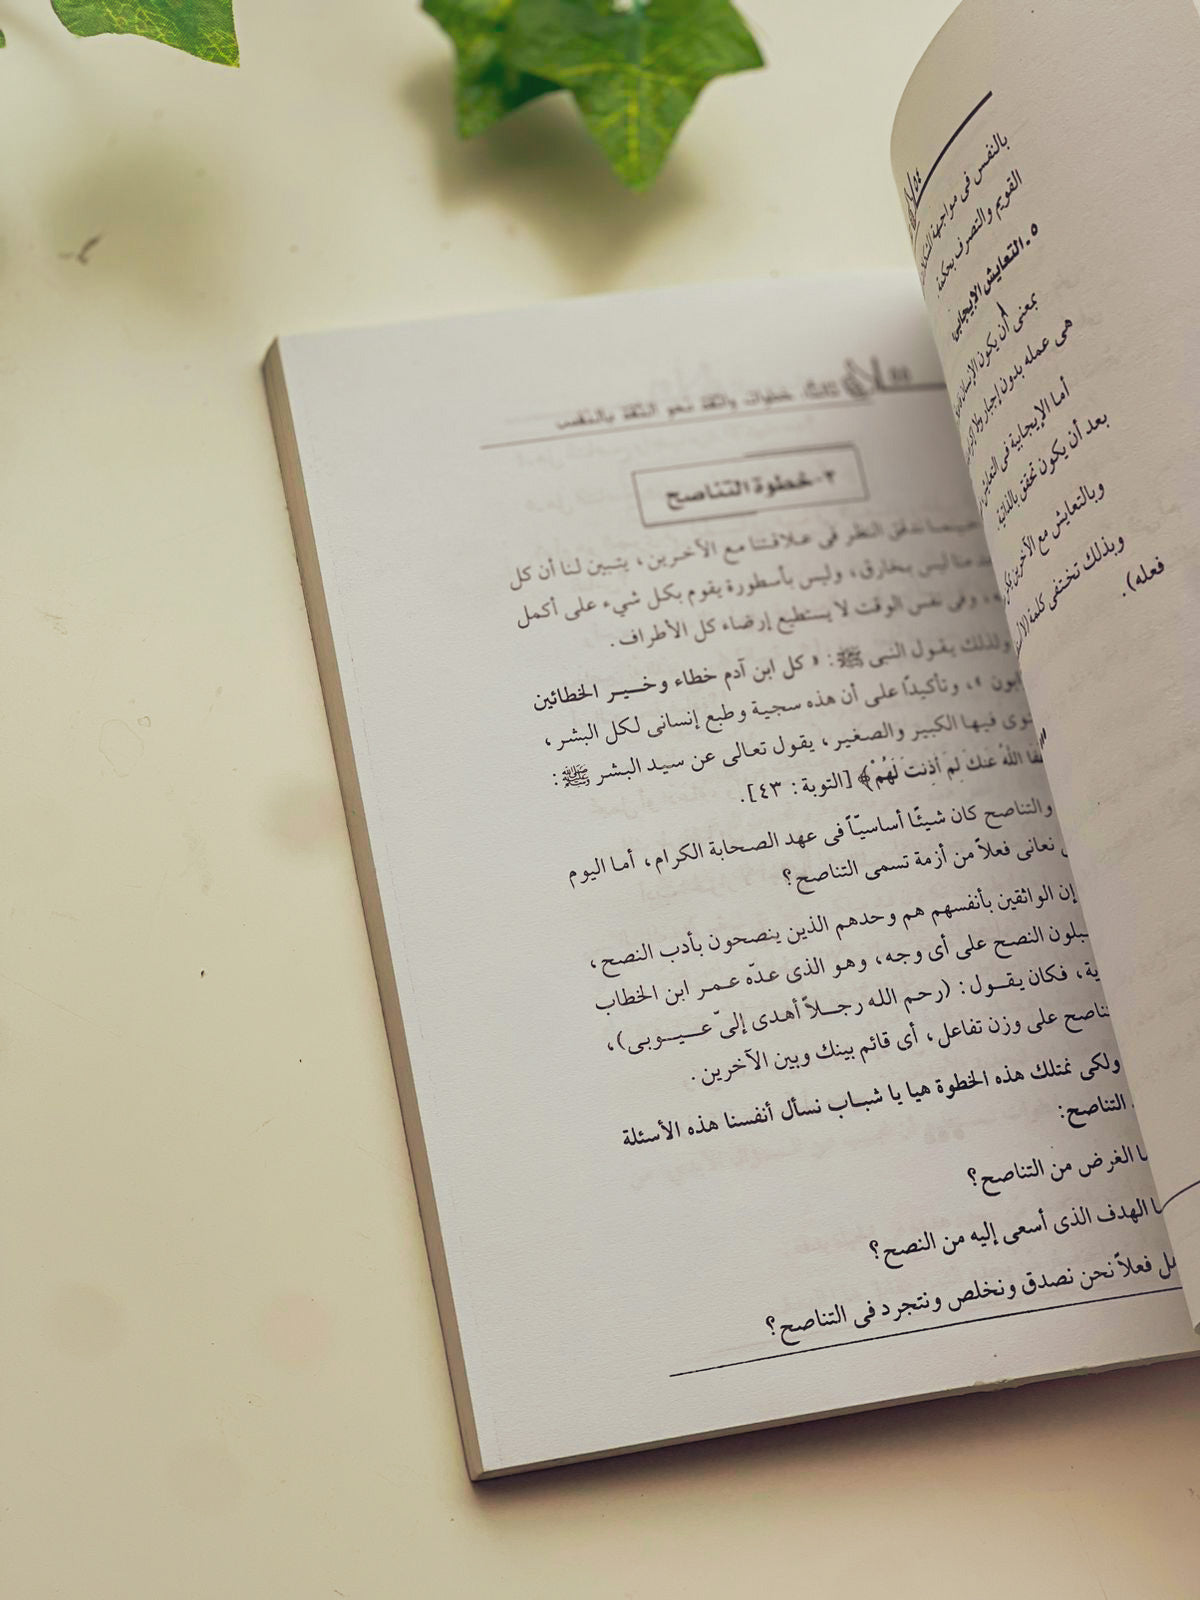 بالنفس فى مواجهة
القويم والتصرف بحكمة.
٥ - التعايش الإيجابى
بمعنى أن يكون الإنسان
هى عمله بدون إجبار ولا
أما الإيجابية فى التعايش
بعد أن يكون تحقق بالذاتية.
وبالتعايش مع الآخرين
وبذلك تختفى كلمة
فعله).
ثالثًا: خطوات واثقة نحو الثقة بالنفس
٢- خطوة التناصح
حينما ندقق النظر فى علاقتنا مع الآخرين، يتبين لنا أن كل
منا ليس بخارق، وليس بأسطورة يقوم بكل شيء على أكمل
وفى نفس الوقت لا يستطيع إرضاء كل الأطراف.
ولذلك يقول النبى ﷺ: « كل ابن آدم خطاء وخير الخطائين
»، وتأكيدًا على أن هذه سجية وطبع إنسانى لكل البشر،
فيها الكبير والصغير، يقول تعالى عن سيد البشر ﷺ:
اللَّهُ عَنكَ لِمَ أَذِنتَ لَهُمْ﴾ [التوبة: ٤٣].
والتناصح كان شيئًا أساسيّاً فى عهد الصحابة الكرام، أما اليوم
نعانى فعلاً من أزمة تسمى التناصح؟
إن الواثقين بأنفسهم هم وحدهم الذين ينصحون بأدب النصح،
النصح على أى وجه، وهو الذى عدّه عمر ابن الخطاب
فكان يقول: (رحم الله رجلاً أهدى إلىّ عيوبى)،
على وزن تفاعل، أى قائم بينك وبين الآخرين.
ولكى نمتلك هذه الخطوة هيا يا شباب نسأل أنفسنا هذه الأسئلة
التناصح:
الغرض من التناصح؟
الهدف الذى أسعى إليه من النصح؟
فعلاً نحن نصدق ونخلص ونتجرد فى التناصح؟